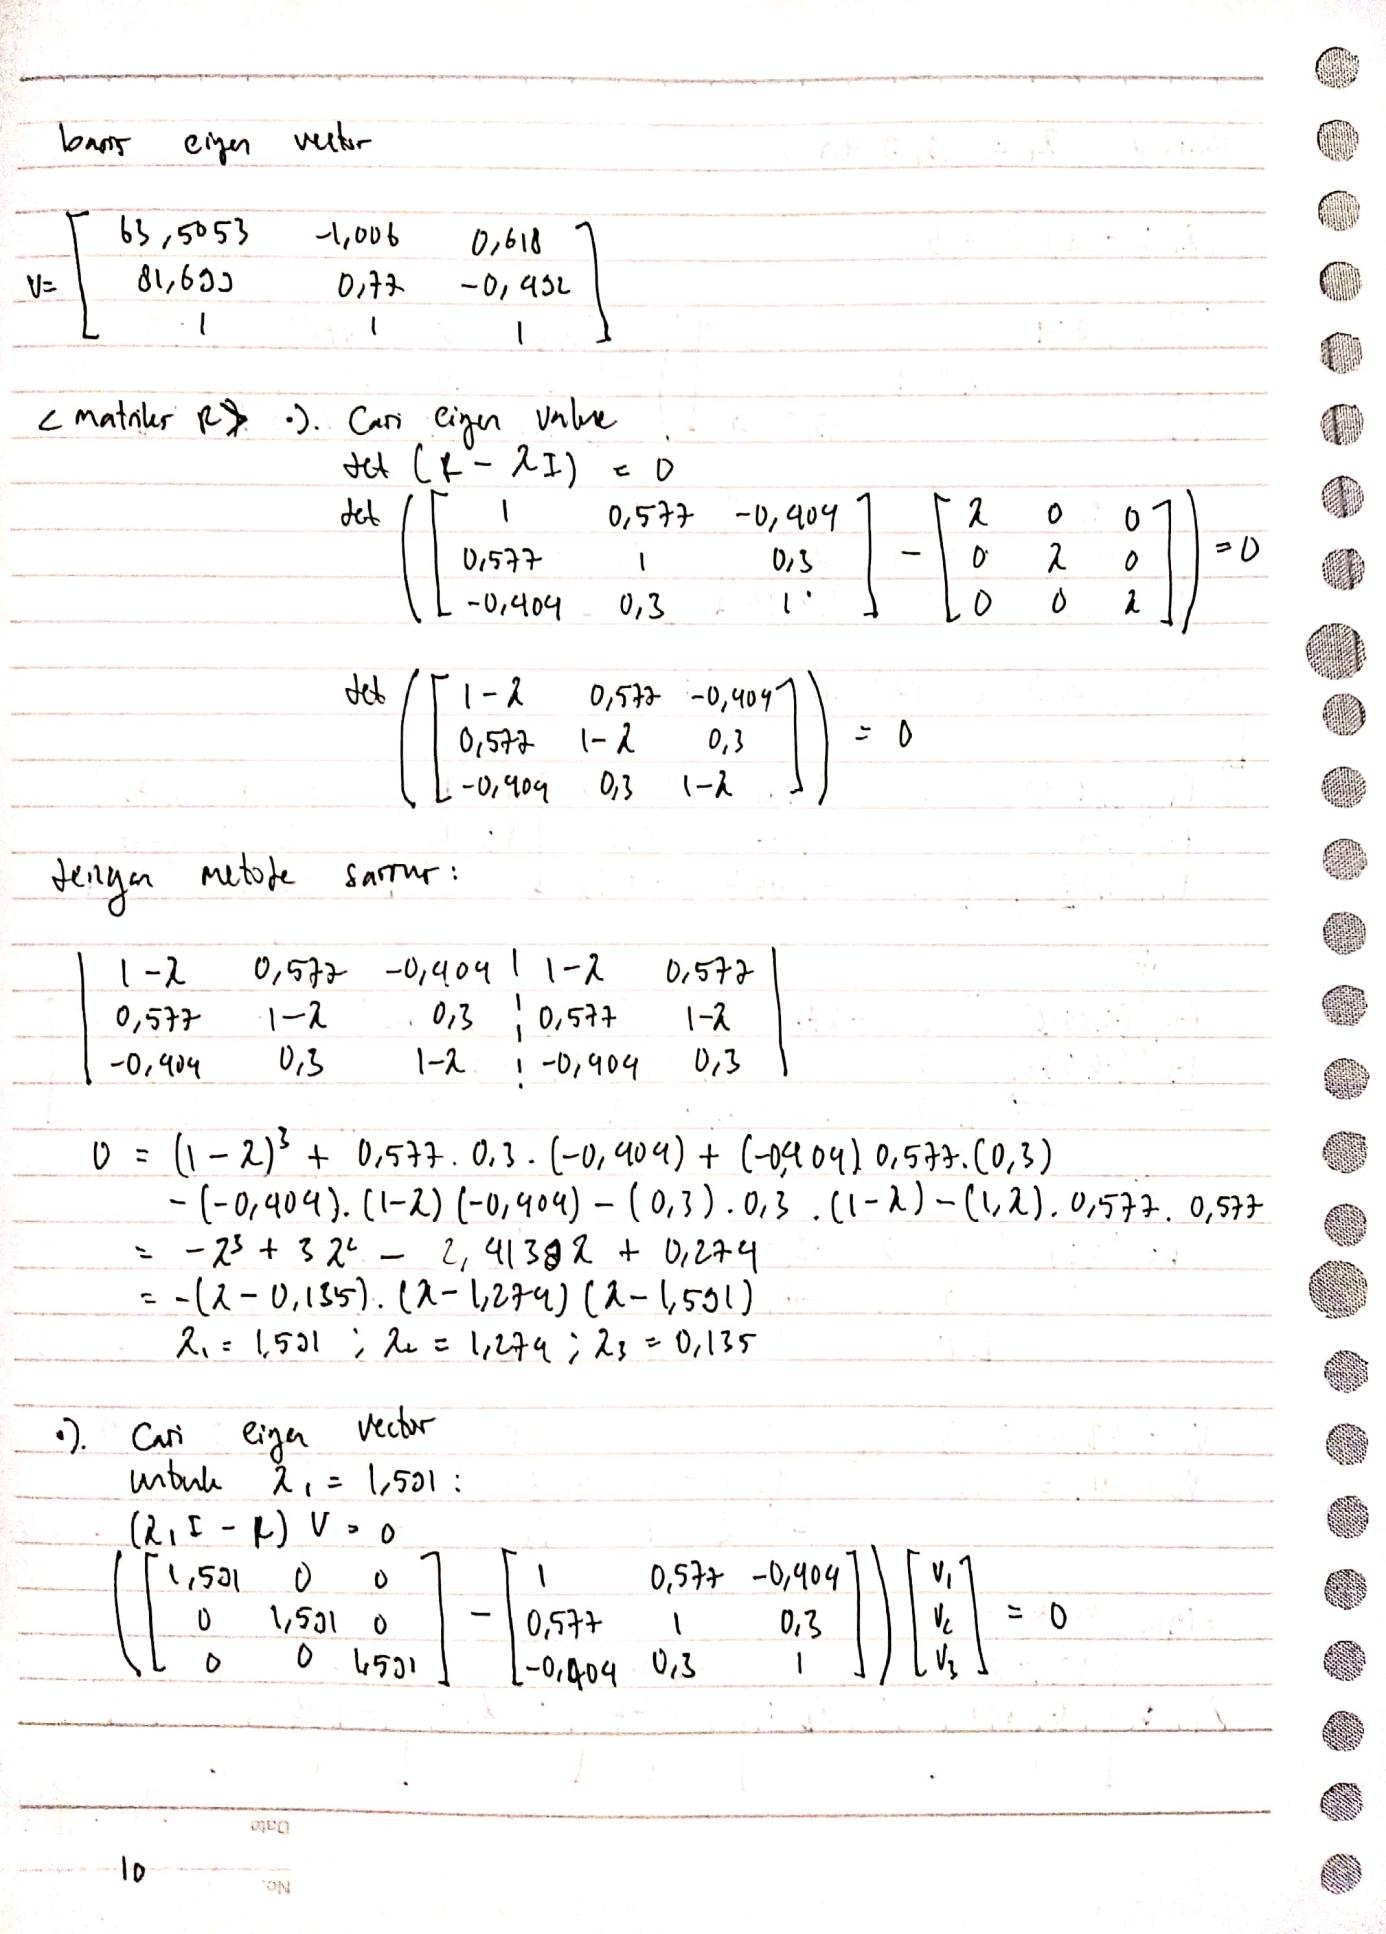 basis eigen vector
V= [ 63,5053 -1,006 0,618
81,699 0,77 -0,492
1 1 1 ]
< matriks R> •). Cari eigen value
det (R - λI) = 0
det ( [ 1 0,577 -0,404 ] - [ λ 0 0 ] ) = 0
0,577 1 0,3 0 λ 0
-0,404 0,3 1 0 0 λ
det ( [ 1-λ 0,577 -0,404 ] ) = 0
0,577 1-λ 0,3
-0,404 0,3 1-λ
dengan metode sarrur :
| 1-λ 0,577 -0,404 ¦ 1-λ 0,577 |
0,577 1-λ 0,3 ¦ 0,577 1-λ
-0,404 0,3 1-λ ¦ -0,404 0,3
0 = (1-λ)³ + 0,577. 0,3. (-0,404) + (-0,404) 0,577.(0,3)
- (-0,404). (1-λ) (-0,404) - (0,3). 0,3 . (1-λ) - (1,λ). 0,577. 0,577
= -λ³ + 3λ² - 2,4138λ + 0,274
= -(λ-0,135). (λ-1,274) (λ-1,591)
λ₁ = 1,591 ; λ₂ = 1,274 ; λ₃ = 0,135
•). Cari eigen vector
untuk λ₁ = 1,591 :
(λ₁I - R) V = 0
( [ 1,591 0 0 ] - [ 1 0,577 -0,404 ] ) [ V₁ ] = 0
0 1,591 0 0,577 1 0,3 V₂
0 0 1,591 -0,404 0,3 1 V₃
Date
10
No.